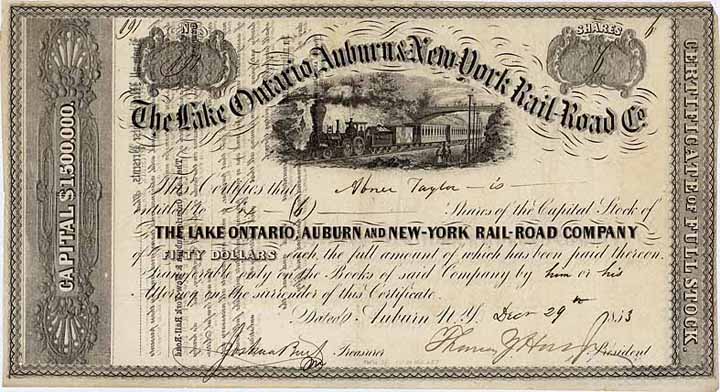 191
No.
SHARES
6
6
The Lake Ontario, Auburn & New-York Rail-Road Co.
CAPITAL $1500,000.
CERTIFICATE OF FULL STOCK.
This Certifies that Abner Taylor is
entitled to (6) Shares of the Capital Stock of
THE LAKE ONTARIO, AUBURN AND NEW-YORK RAIL-ROAD COMPANY
of FIFTY DOLLARS each, the full amount of which has been paid thereon.
Transferable only on the Books of said Company by him or his
Attorney on the surrender of this Certificate.
Dated Auburn N.Y. Decr 29th 1853
Joshua Treasurer Thomas Y. President